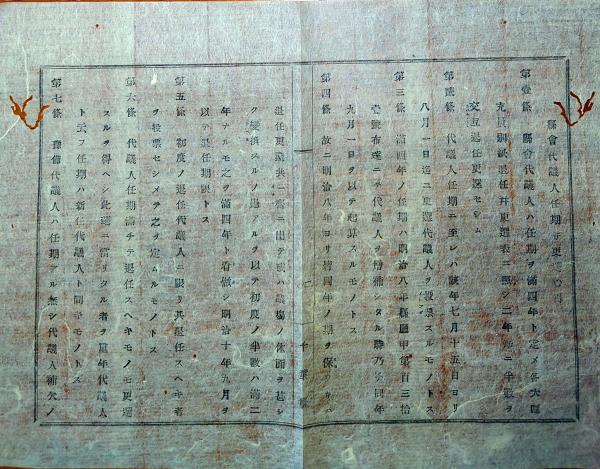 縣會代議人任期并更選
第壹條 縣會代議人ハ任期ヲ滿四年ト定メ各大區
九員別紙退任并更選表ニ照シ二年毎ニ半數ヲ
交互退任更選セシム
第貳條 代議人任期ニ至レハ該年七月十五日ヨリ
八月一日迄ニ更選代議人ヲ投票スルモノトス
第三條 滿四年ノ任期ハ明治八年縣廳甲第百三拾
壱號布達ニテ代議人ヲ增補シタル時乃チ同年
九月一日ヲ以テ起算スルモノトス
第四條 故ニ明治八年ヨリ滿四年ノ期ヲ保
退任更選共一齊ニ出テ或ハ議塲ノ体面ヲ甚シ
ク變換スルノ患アルヲ以テ初度ノ半數ハ滿二
年ナルモ之ヲ滿四年ト看做シ明治十年九月ヲ
以テ退任期限トス
第五條 初度ノ退任代議人ニ限リ其退任スヘキ者
ヲ投票セシメテ之ヲ定ムルモノトス
第六條 代議人任期滿チテ退任スヘキモノモ更選
スルヲ得ヘシ此選ニ當リタル者ヲ重年代議人
ト云フ任期ハ新任代議人ト同キモノトス
第七條 豫備代議人ハ任期アル無シ代議人補欠ノ
千葉縣